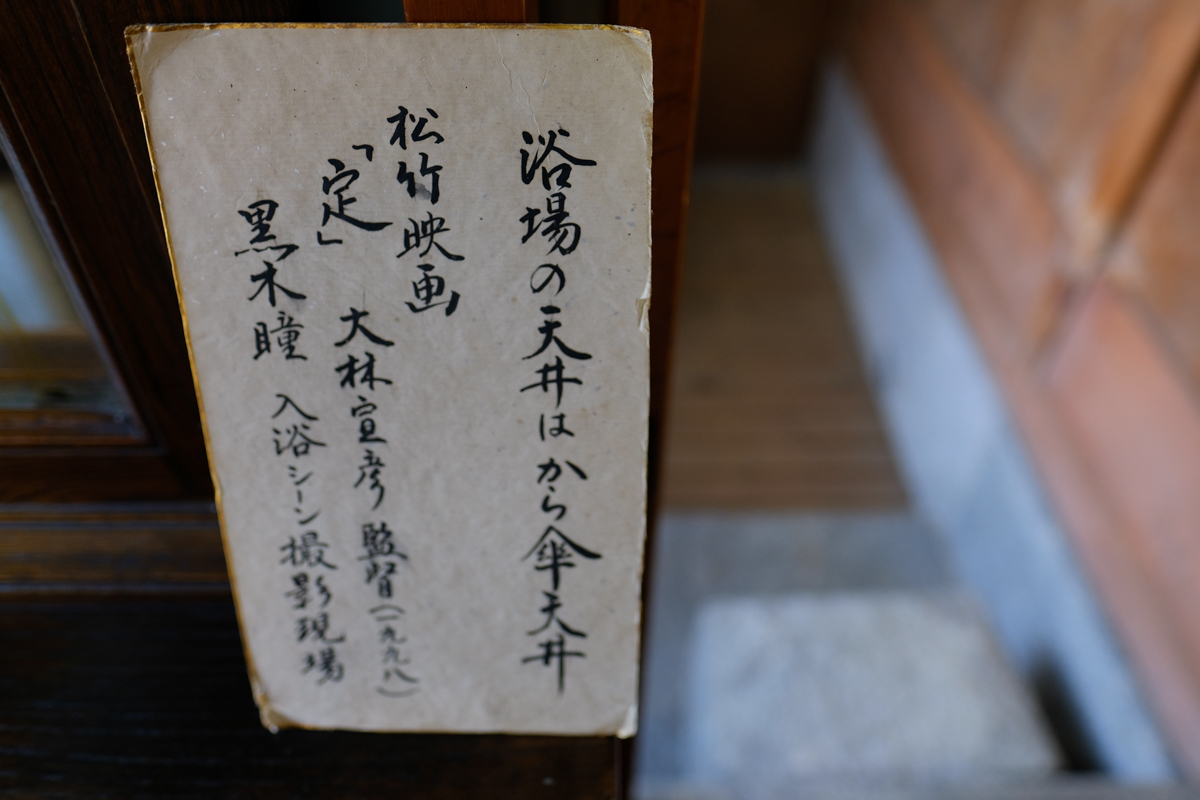 浴場の天井はから傘天井
松竹映画
「定」 大林宣彦監督（一九九八）
黒木瞳 入浴シーン撮影現場